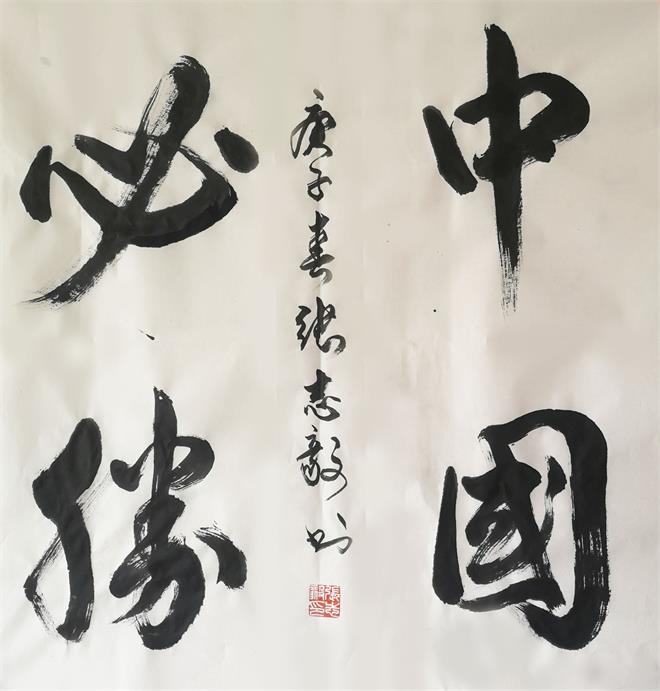 中國
必勝
庚子春張志毅书
張志毅印